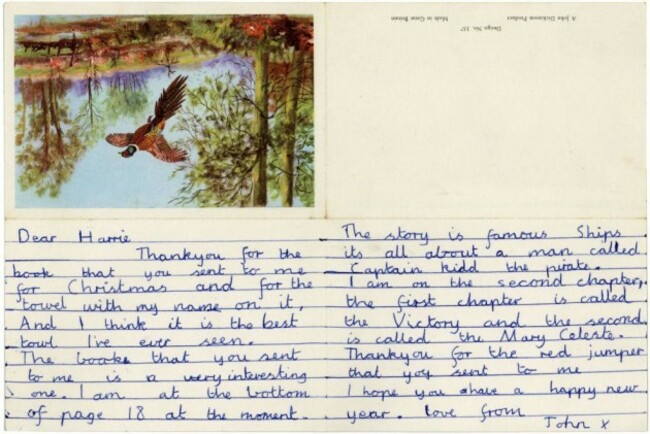 A John Dickinson Product
Design No. 137
Made in Great Britain
Dear Harrie
Thankyou for the
book that you sent to me
for Christmas and for the
towel with my name on it,
And I think it is the best
towl I've ever seen.
The books that you sent
to me is a very interesting
one. I am at the bottom
of page 18 at the moment.
The story is famous Ships
its all about a man called
Captain kidd the pirate.
I am on the second chapter,
the first chapter is called
the Victory and the second
is called the Mary Celeste.
Thankyou for the red jumper
that yoy sent to me
I hope you ahave a happy new
year. love from
John x